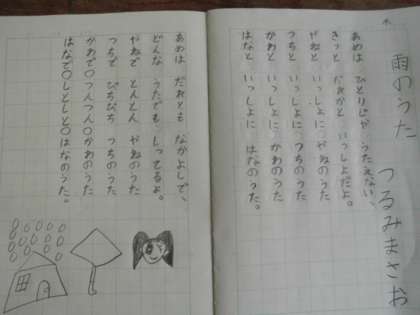 雨のうた つるみまさお
あめは ひとりじゃ うたえない、
きっと だれかと いっしょだよ。
やねと いっしょに やねのうた
つちと いっしょに つちのうた
かわと いっしょに かわのうた
はなと いっしょに はなのうた。
あめは だれとも なかよしで、
どんな うたでも しってるよ。
やねで とんとん やねのうた
つちで ぴちぴち つちのうた
かわで〇つんつん〇かわのうた
はなで〇しとしと〇はなのうた。